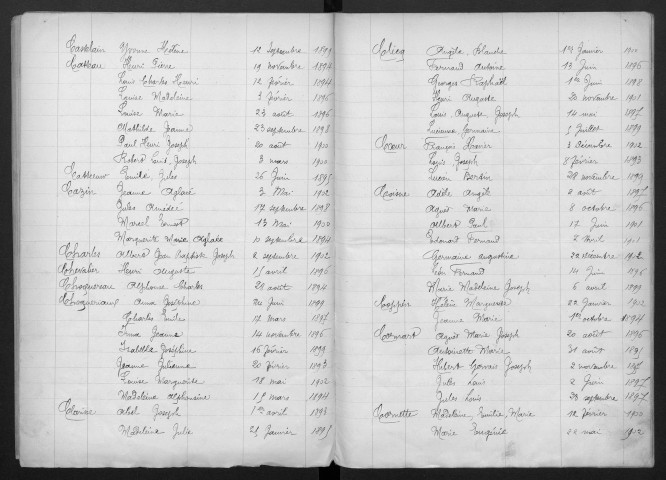 Castelain Yvonne Hélène 12 Septembre 1899
Catteau Henri Pierre 19 novembre 1894
Louis Charles Henri 12 février 1894
Louise Madeleine 3 février 1896
Louise Marie 23 août 1896
Mathilde Jeanne 23 septembre 1898
Paul Henri Joseph 20 août 1900
Robert Louis Joseph 3 mars 1900
Emile Jules 26 Juin 1895
Cazin Jeanne Aglaé 3 Mai 1902
Jules Amédée 17 septembre 1898
Marcel Ernest 13 Mai 1900
Marguerite Marie Aglaée 10 septembre 1894
Charles Albert Jean Baptiste Joseph 2 septembre 1902
Chevalier Henri Auguste 15 avril 1896
Choquereau Alphonse Charles 29 août 1894
Anna Joséphine 24 Juin 1899
Charles Emile 17 mars 1897
Irma Jeanne 14 novembre 1896
Isabelle Joséphine 16 février 1899
Jeanne Julienne 20 février 1893
Louise Marguerite 18 mai 1902
Madeleine Alphonsine 15 mars 1894
Joseph 1er avril 1893
Madeleine Julie 25 Janvier 1895
Angèle Blanche 1er Janvier 1900
Fernand Antoine 13 Juin 1896
Georges Raphaël 1er Juin 1898
Henri Auguste 20 novembre 1901
Louis Auguste Joseph 14 mai 1897
Lucienne Germaine 5 Juillet 1899
Coeur François Xavier 3 décembre 1902
Joseph 8 février 1893
Lucien 28 novembre 1899
Adèle Angèle 2 août
Agnès Marie 8 octobre 1896
Albert Paul 17 Juin 1901
Edouard Fernand 2 avril 1901
Germaine Augustine 22 décembre 1902
Léon Fernand 14 Juin 1896
Marie Madeleine Joseph 6 avril 1899
Coppin Hélène Marguerite 22 Janvier 1902
Jeanne Marie 1er octobre 1894
Agnès Marie Joseph 20 août 1896
Antoinette Marie 31 août 1895
Hubert Gervais Joseph 2 novembre
Jules Louis 2 Juin 1895
Jules Louis 29 septembre 1897
Cornette Madeleine Emilie Marie 12 février 1900
Marie Eugénie 22 mai 1902